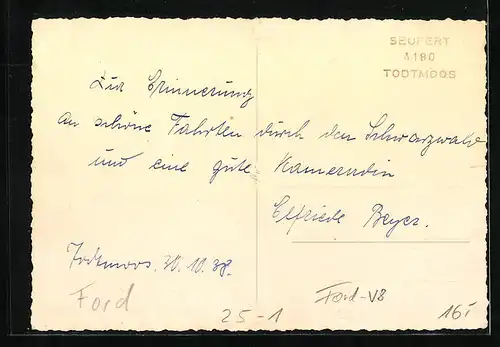 SEUFERT
4180
TODTMOOS
Zur Erinnerung
an schöne Fahrten durch den Schwarzwald
und eine gute Kameradin
Elfriede Beyer.
Todtmoos. 30.10.38.
Ford
25-1
Ford-V8
16,-